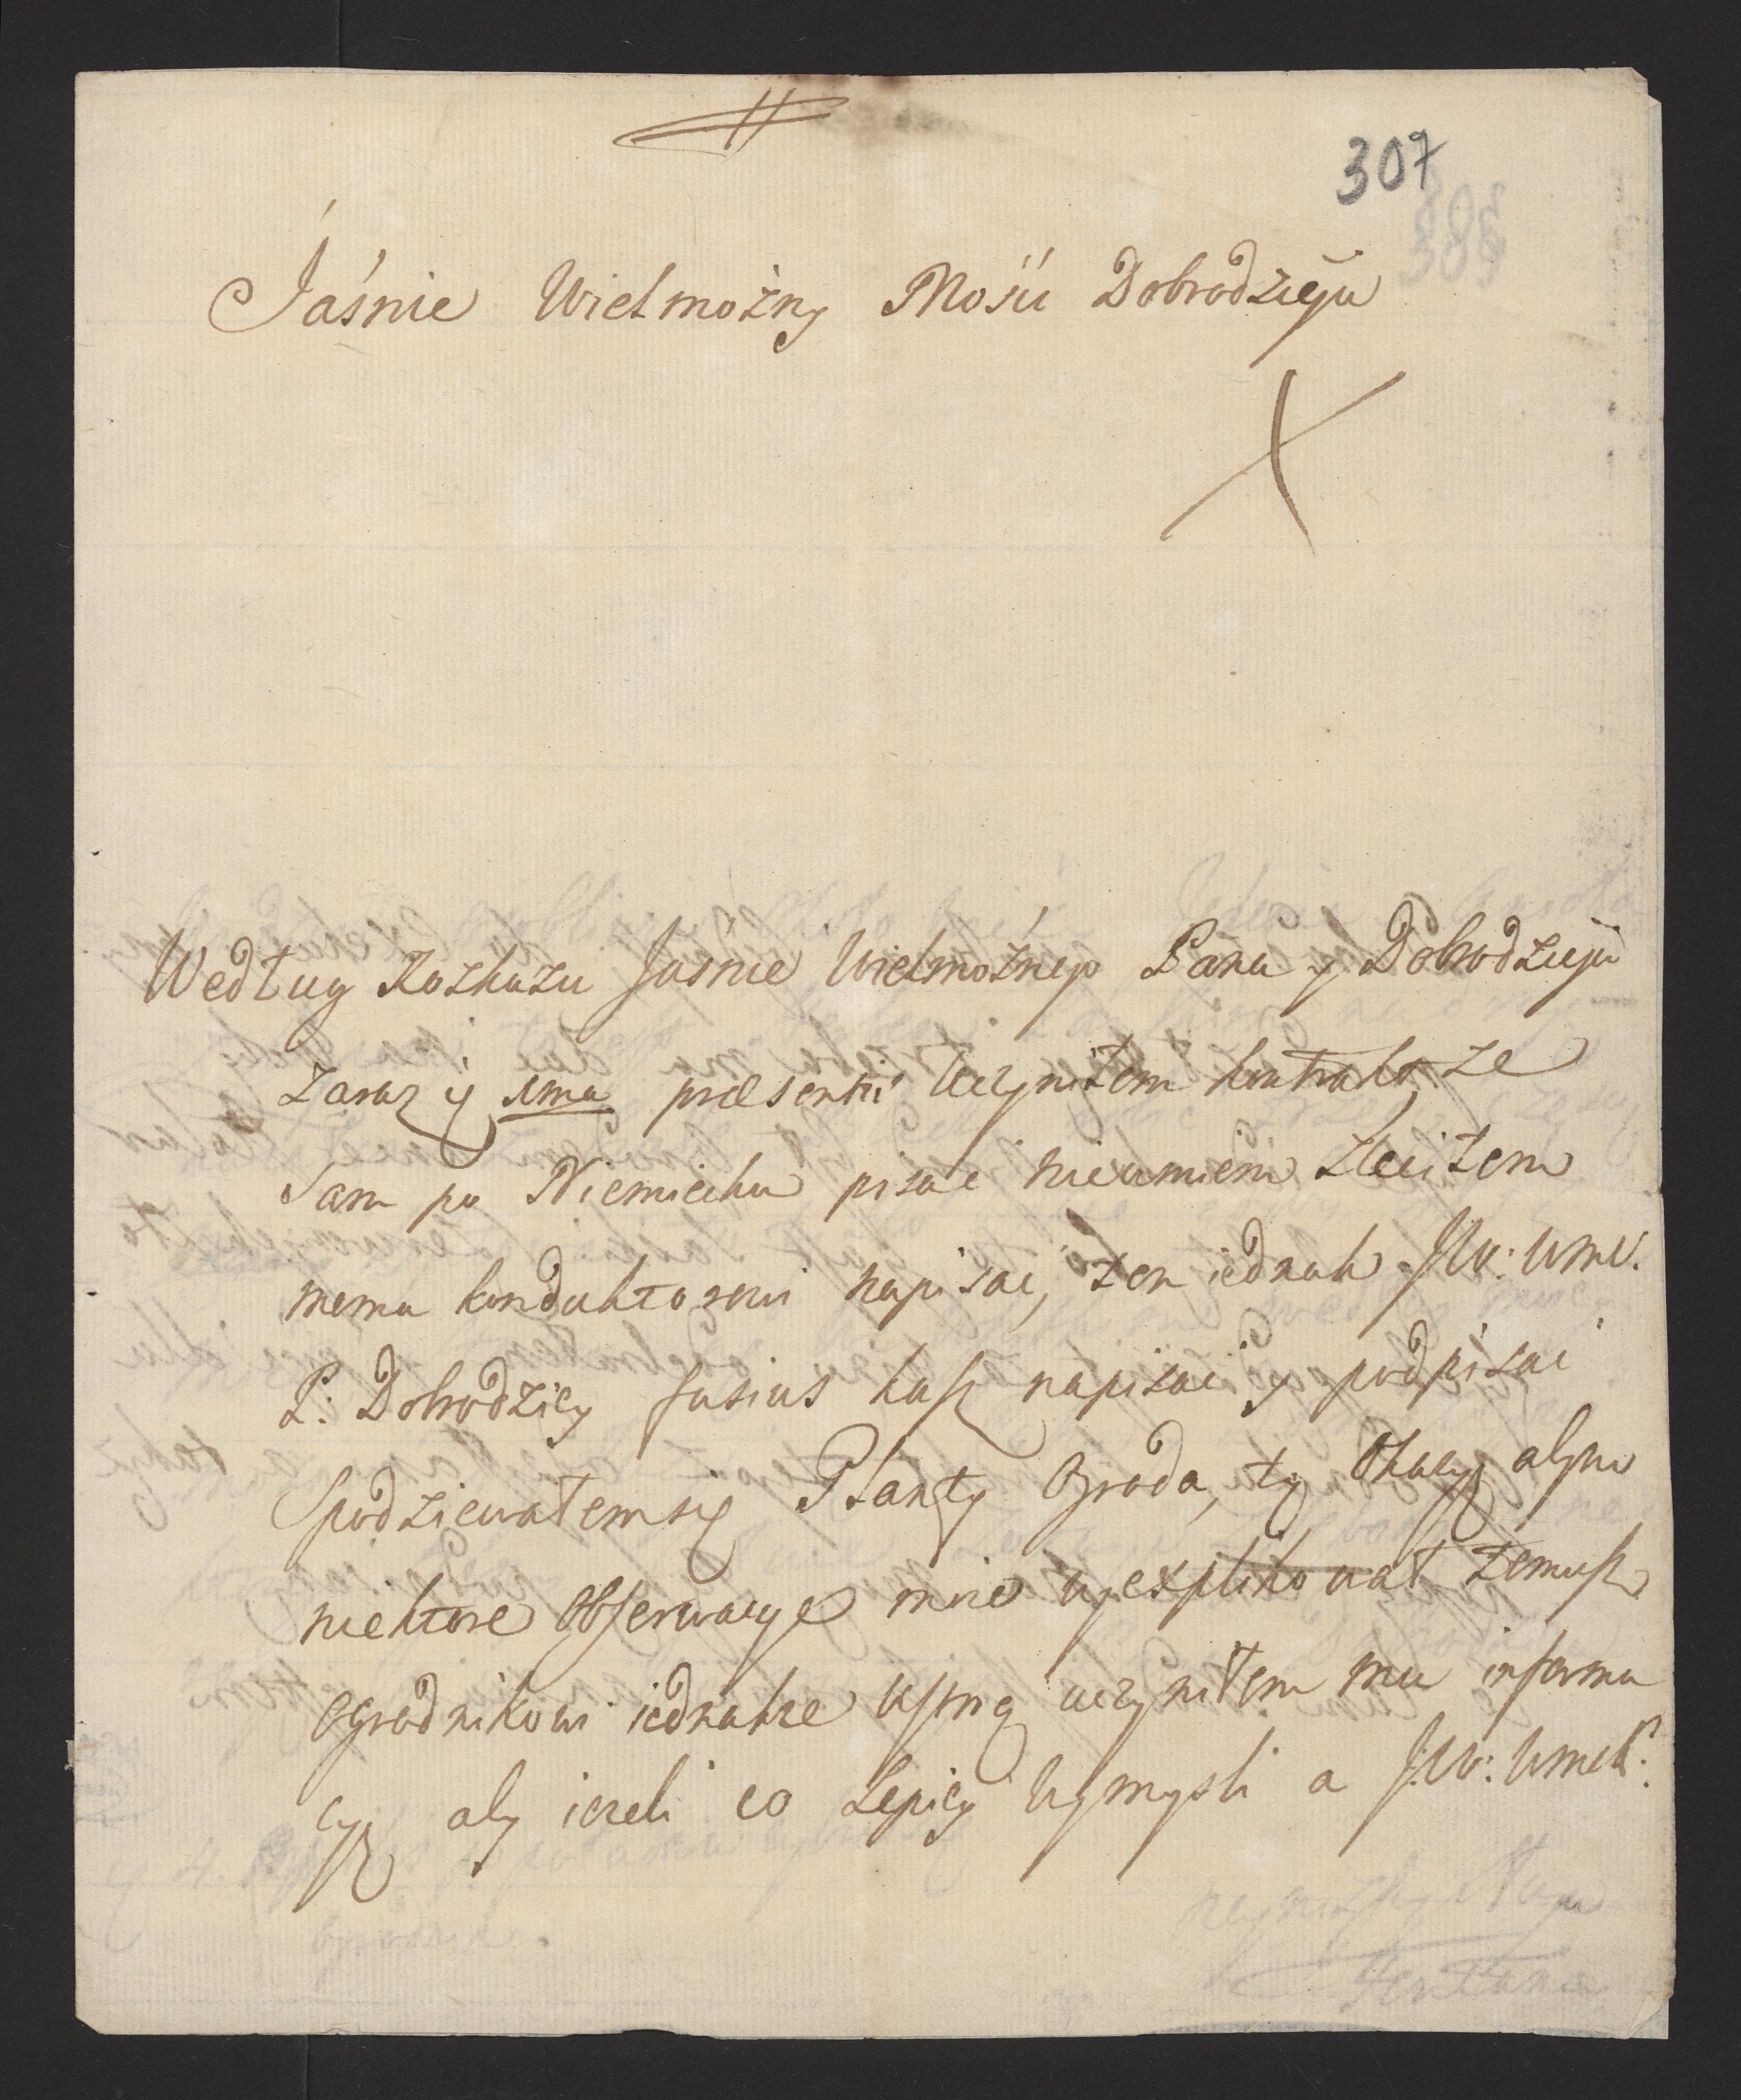 307
Jaśnie Wielmożny Mości Dobrodzieju
Według Rozkazu Jaśnie Wielmożnego Pana y Dobrodzieja
zaraz y præsentis uczyniłem kontrakt, że
Sam po Niemiecku pisać nieumiem zleciłem
memu konduktorowi napisać, ten iednak JW: WMC.
P: Dobrodziey fusius każ napisać y podpisać
Spodziewałemsię Planty Ogroda, tę Okacyę abym
niektore Observacye mnie wyexplikował temuż
ogrodnikowi iednakże uczyniłem mu informa
cyę aby ieżeli co Lepiey wymyśli a J:W: WMCP: